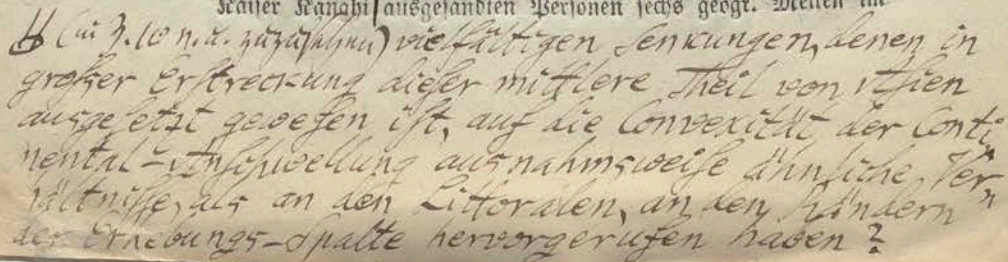 Kaiser Kanghi ausgesandten Personen sechs geogr. Meilen im
(zu Z. 10 n. u. zuzuziehen) vielfältigen Senkungen, denen in
großer Erstreckung dieser mittlere Theil von Asien
ausgesetzt gewesen ist, auf die Convexität der Conti
nental-Anschwellung ausnahmsweise ähnliche Ver
hältnisse, als an den Littoralen, an den Rändern
der Erhebungs-Spalte hervorgerufen haben?